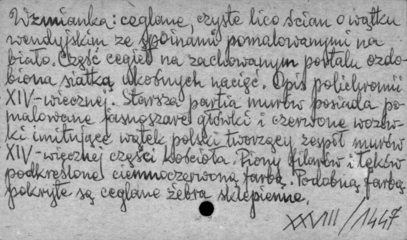 Wzmianka: ceglane, czyste lico ścian o wątku
wendyjskim ze spoinami pomalowanymi na
biało. Część cegieł na zachowanym portalu ozdo-
biona siatką ukośnych nacięć. Opis polichromii
XIV-wiecznej. Starsza partia murów posiada po-
malowane jasnoszare główki i czerwone wozów-
ki imitujące wątek polski tworzący zespół murów
XIV-wiecznej części kościoła. Piony filarów i łęków
podkreślone ciemnoczerwoną farbą. Podobną farbą
pokryte są ceglane żebra sklepienne.
XXVIII/1447